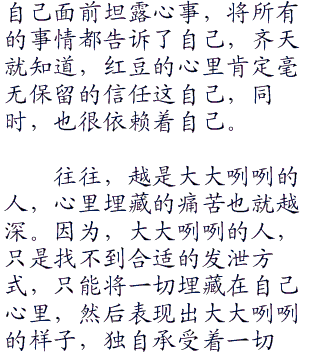 自己面前坦露心事，将所有
的事情都告诉了自己，齐天
就知道，红豆的心里肯定毫
无保留的信任这自己，同
时，也很依赖着自己。
往往，越是大大咧咧的
人，心里埋藏的痛苦也就越
深。因为，大大咧咧的人，
只是找不到合适的发泄方
式，只能将一切埋藏在自己
心里，然后表现出大大咧咧
的样子，独自承受着一切